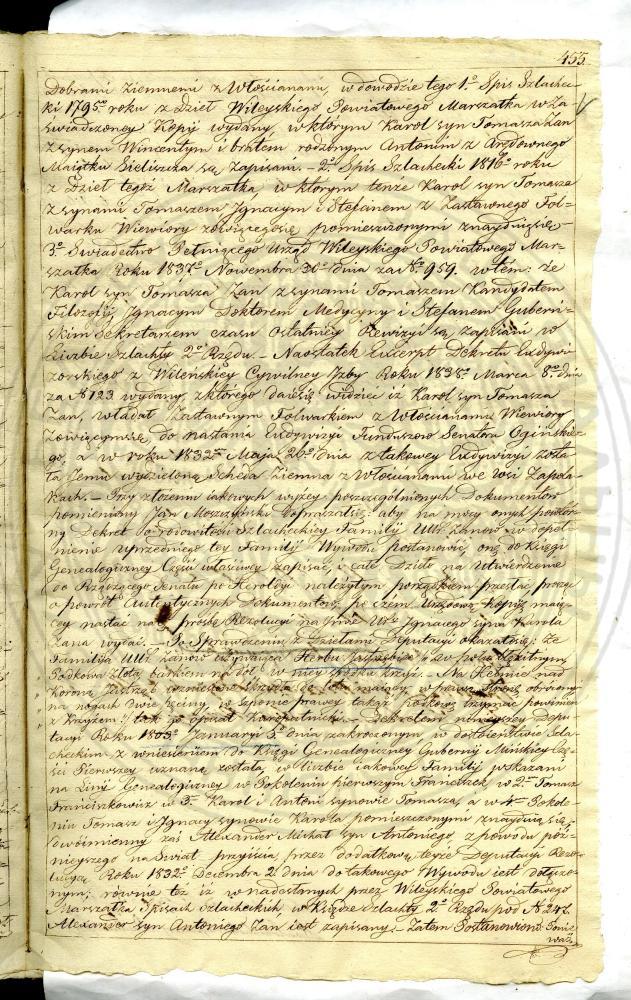 455
Dobrami Ziemnemi z Włościanami, w dowodzie tego 1º Spis Szlachec-
ki 1795º roku z Dzieł Wileyskiego Powiatowego Marszałka w Za
swiadczoney Kopij wydany, w którym Karol syn Tomasza Zan
z synem Wincentym i bratem rodzonym Antonim z Arędownego
Maiątku Sieliszcza są zapisani. – 2º Spis Szlachecki 1816º roku
z Dzieł tegoż Marszałka, w którym tenże Karol syn Tomasza
z synami Tomaszem Ignacym i Stefanem z Zastawnego Fol-
warku Wiewiory zowiącegosię pomieszczonymi znayduiesię. –
3º Swiadectwo Pełniącego Urząd Wileyskiego Powiatowego Mar-
szałka Roku 1837º Nowembra 30º dnia za № 959. w tém: że
Karol syn Tomasza Zan z synami Tomaszem Kandydatem
Filozofij, Ignacym Doktorem Medycyny i Stefanem Guberń-
skim Sekretarzem czasu Ostatniey Rewizyi są zapisani w
Liczbie Szlachty 2º Rzędu. – Naostatek Excerpt Dekretu Exdywi-
zorskiego z Wileńskiey Cywilney Izby Roku 1838º Marca 8º dnia
za № 123 wydany, z którego daiesię widzieć iż Karol syn Tomasza
Zan, władał Zastawnym Folwarkiem z Włościanami Wiewiory
Zowiącymsię do nastania Exdywizyi Funduszow Senatora Ogińskie-
go, a w roku 1832º Maja 20º dnia z takowey Exdywizyi zosta-
ła Jemu wydzieloną Scheda Ziemna z Włościanami we wsi Zapola-
kach. – Przy złożeniu iakowych wyżey poszczególnionych Dokumentów
pomieniony Jan Moszyński dopraszałsię: aby na mocy onych powtór-
ny Dekret o rodowitości Szlacheckiey Familij Ur. Zanow w dopeł-
nienie uprzedniego tey Familij Wywodu postanowić, onę do Księgi
Genealogiczney Części właściwey zapisać, i całe Dzieło na Utwierdzenie
do Rządzącego Senatu po Heroldyi należytym porządkiem przesłać, prosząc
o powrót Autentycznych Dokumentow, po czém Urzędową Kopiję maią-
cey nastać na prosbę Rezolucyi na Imie Ur. Ignacego syna Karola
Zana wydać. – Po Sprawdzeniu z Dziełami Deputacyi okazałosię: że
Familija Ur. Zanow używaiąca Herbu Jastrzębiec w polu błękitnym
Podkowa złota barkiem na doł w niey srodku krzyż. – Na Hełmie nad
Koroną Jastrząb wzniesione skrzydła do lotu maiący w prawą stronę obrócony
na nogach dwie rzeciny, w szponie prawey takąż podkowę trzymać powinien
z krzyżem / tak go opisał Karopatnicki. – Dekretem ninieyszey Depu-
tacyi Roku 1803º Januaryi 5º dnia zakroczonym, w dostoieństwie Szla-
checkiem, z wniesieniem do Księgi Genealogiczney Gubernij Mińskiey Czę-
ści Pierwszey uznaną została, w liczbie iakowey Familij wskazani
na Linij Genealogiczney w Pokoleniu pierwszym Franciszek, w 2º Tomasz
Franciszkowicz w 3º Karol i Antoni synowie Tomasza, a w 4º Pokole-
niu Tomasz i Ignacy synowie Karola pomieszczonym znayduią się,
dwóimienny zaś Alexander Michał syn Antoniego z powodu póź-
nieyszego na Swiat przyiscia, przez dodatkową teyże Deputacyi Rezo-
lucyą Roku 1832º Decembra 2º dnia do takowego Wywodu iest dołączo-
nym; rownie też iż w nadesłanych przez Wileyskiego Powiatowego
Marszałka Spisach Szlacheckich, w Księdze Szlachty 2º Rzędu pod № 247
Alexander syn Antoniego Zan iest zapisany. – Zatem Postanowiono: Ponie-
waż